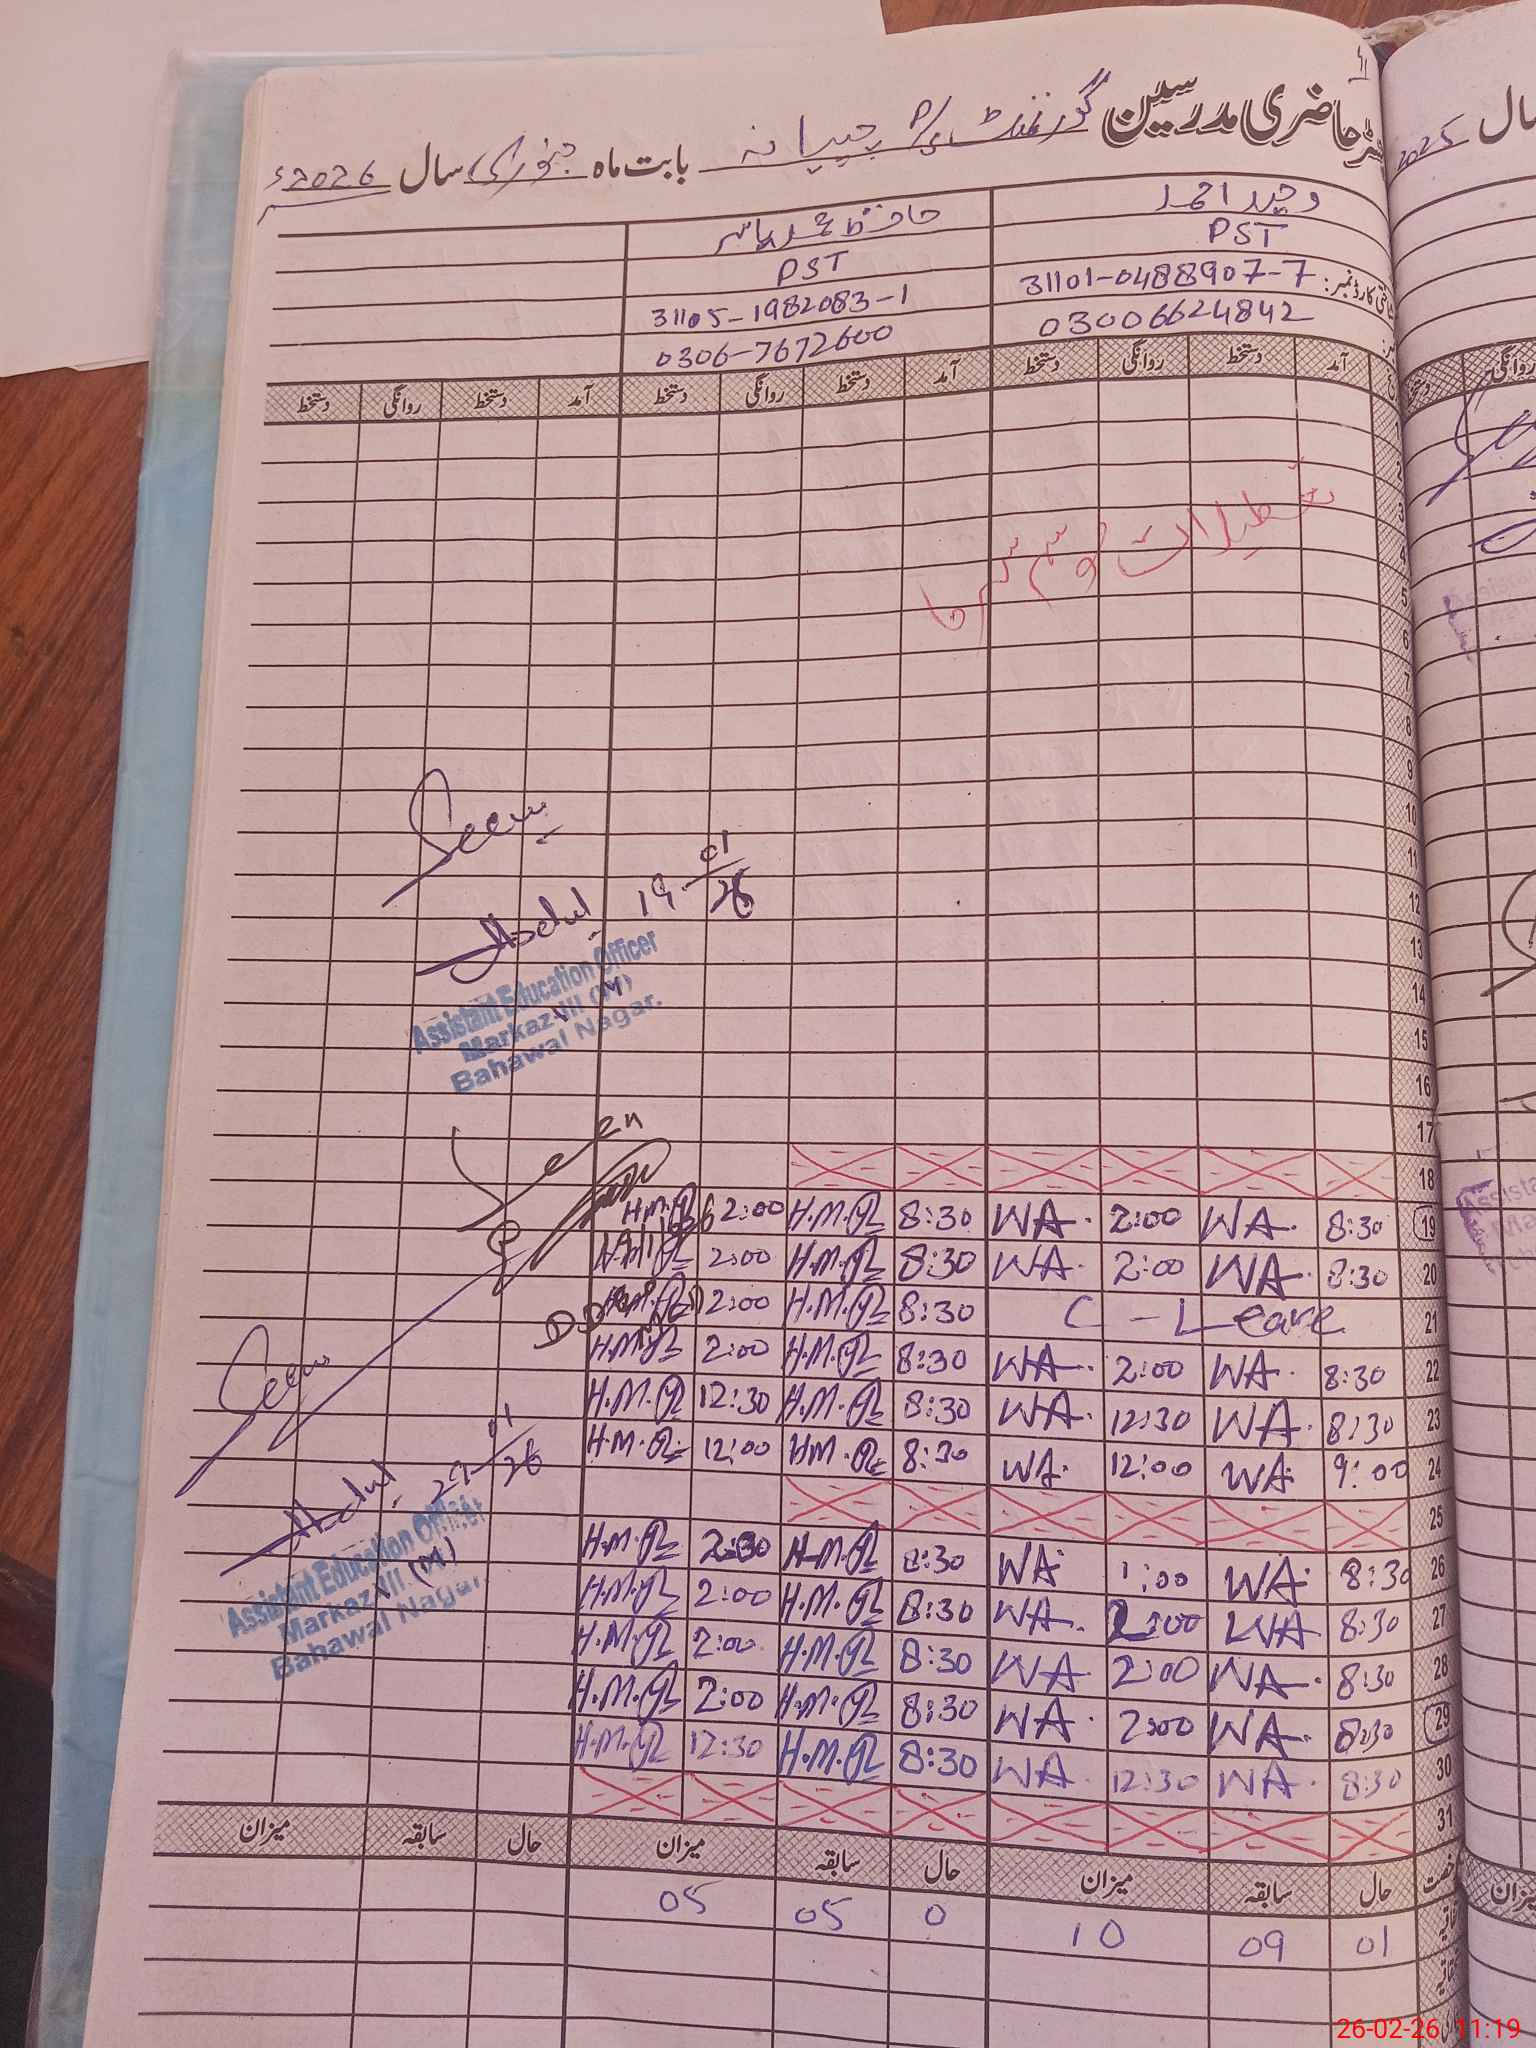 رجسٹر حاضری مدرسین گورنمنٹ P/S چپیانہ بابت ماہ جنوری سال 2026ء
وحید احمد
حافظ محمد یاسر
PST
PST
شناختی کارڈ نمبر: 31101-0488907-7
31105-1982083-1
03006624842
0306-7672600
آمد دستخط روانگی دستخط آمد دستخط روانگی دستخط آمد دستخط روانگی دستخط
تعطیلات موسم گرما
1
2
3
4
5
6
7
8
9
10
11
12
13
14
15
16
17
18
19 8:30 WA. 2:00 WA. 8:30 H.M. 2:00 H.M.
20 8:30 WA. 2:00 WA. 8:30 H.M. 2:00
21 C-Leave 8:30 H.M. 2:00 H.M.
22 8:30 WA. 2:00 WA. 8:30 H.M. 2:00 H.M.
23 8:30 WA. 12:30 WA. 8:30 H.M. 12:30 H.M.
24 9:00 WA. 12:00 WA. 8:30 H.M. 12:00 H.M.
25
26 8:30 WA. 1:00 WA. 8:30 H.M. H.M.
27 8:30 WA 2:00 WA. 8:30 H.M. 2:00 H.M.
28 8:30 WA. 2:00 WA 8:30 H.M. 2:00 H.M.
29 8:30 WA. 2:00 WA. 8:30 H.M. 2:00 H.M.
30 8:30 WA. 12:30 WA. 8:30 H.M. 12:30 H.M.
31
Seen
Abdul 19-01/26
Assistant Education Officer
Markaz VIII (M)
Bahawal Nagar.
Seen
Seen
Abdul 29-01/26
Assistant Education Officer
Markaz VIII (M)
Bahawal Nagar.
حال سابقہ میزان حال سابقہ میزان حال سابقہ میزان
01 09 10 0 05 05
سال 2025
روانگی
میزان
26-02-26 11:19